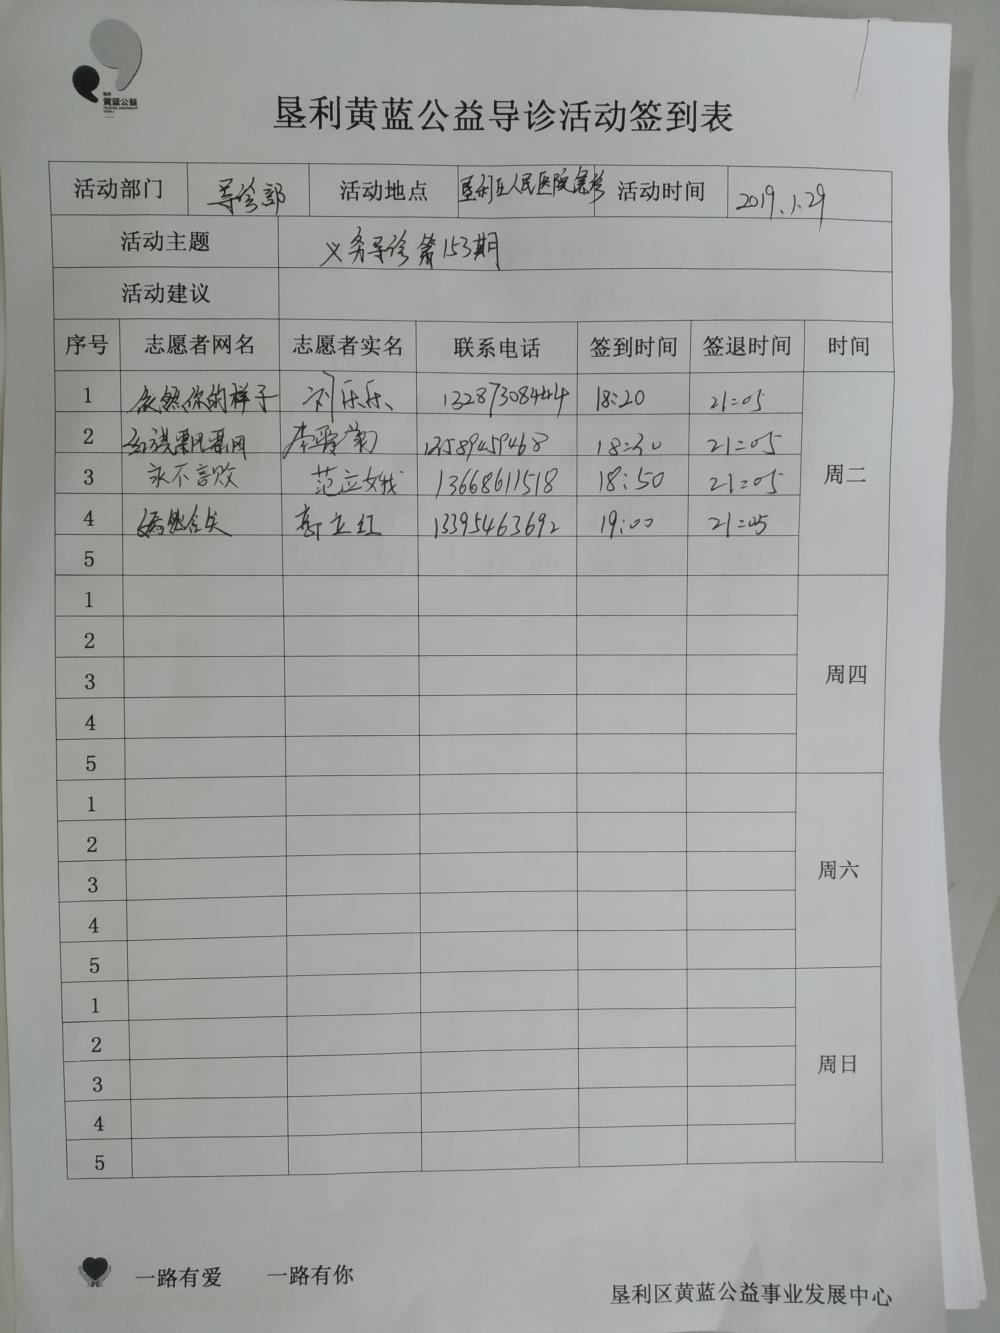 垦利
黄蓝公益
垦利黄蓝公益导诊活动签到表
活动部门 导诊部 活动地点 垦利区人民医院 活动时间 2019.1.29
活动主题 义务导诊第153期
活动建议
序号 志愿者网名 志愿者实名 联系电话 签到时间 签退时间 时间
1 依然你的样子 刘乐乐 13287308444 18:20 21:05
2 李爱菊 13589459468 18:30 21:05
3 永不言败 范立娥 13668611518 18:50 21:05
周二
4 郭立红 13395463692 19:00 21:05
5
1
2
3
周四
4
5
1
2
3
周六
4
5
1
2
3
周日
4
5
一路有爱 一路有你
垦利区黄蓝公益事业发展中心